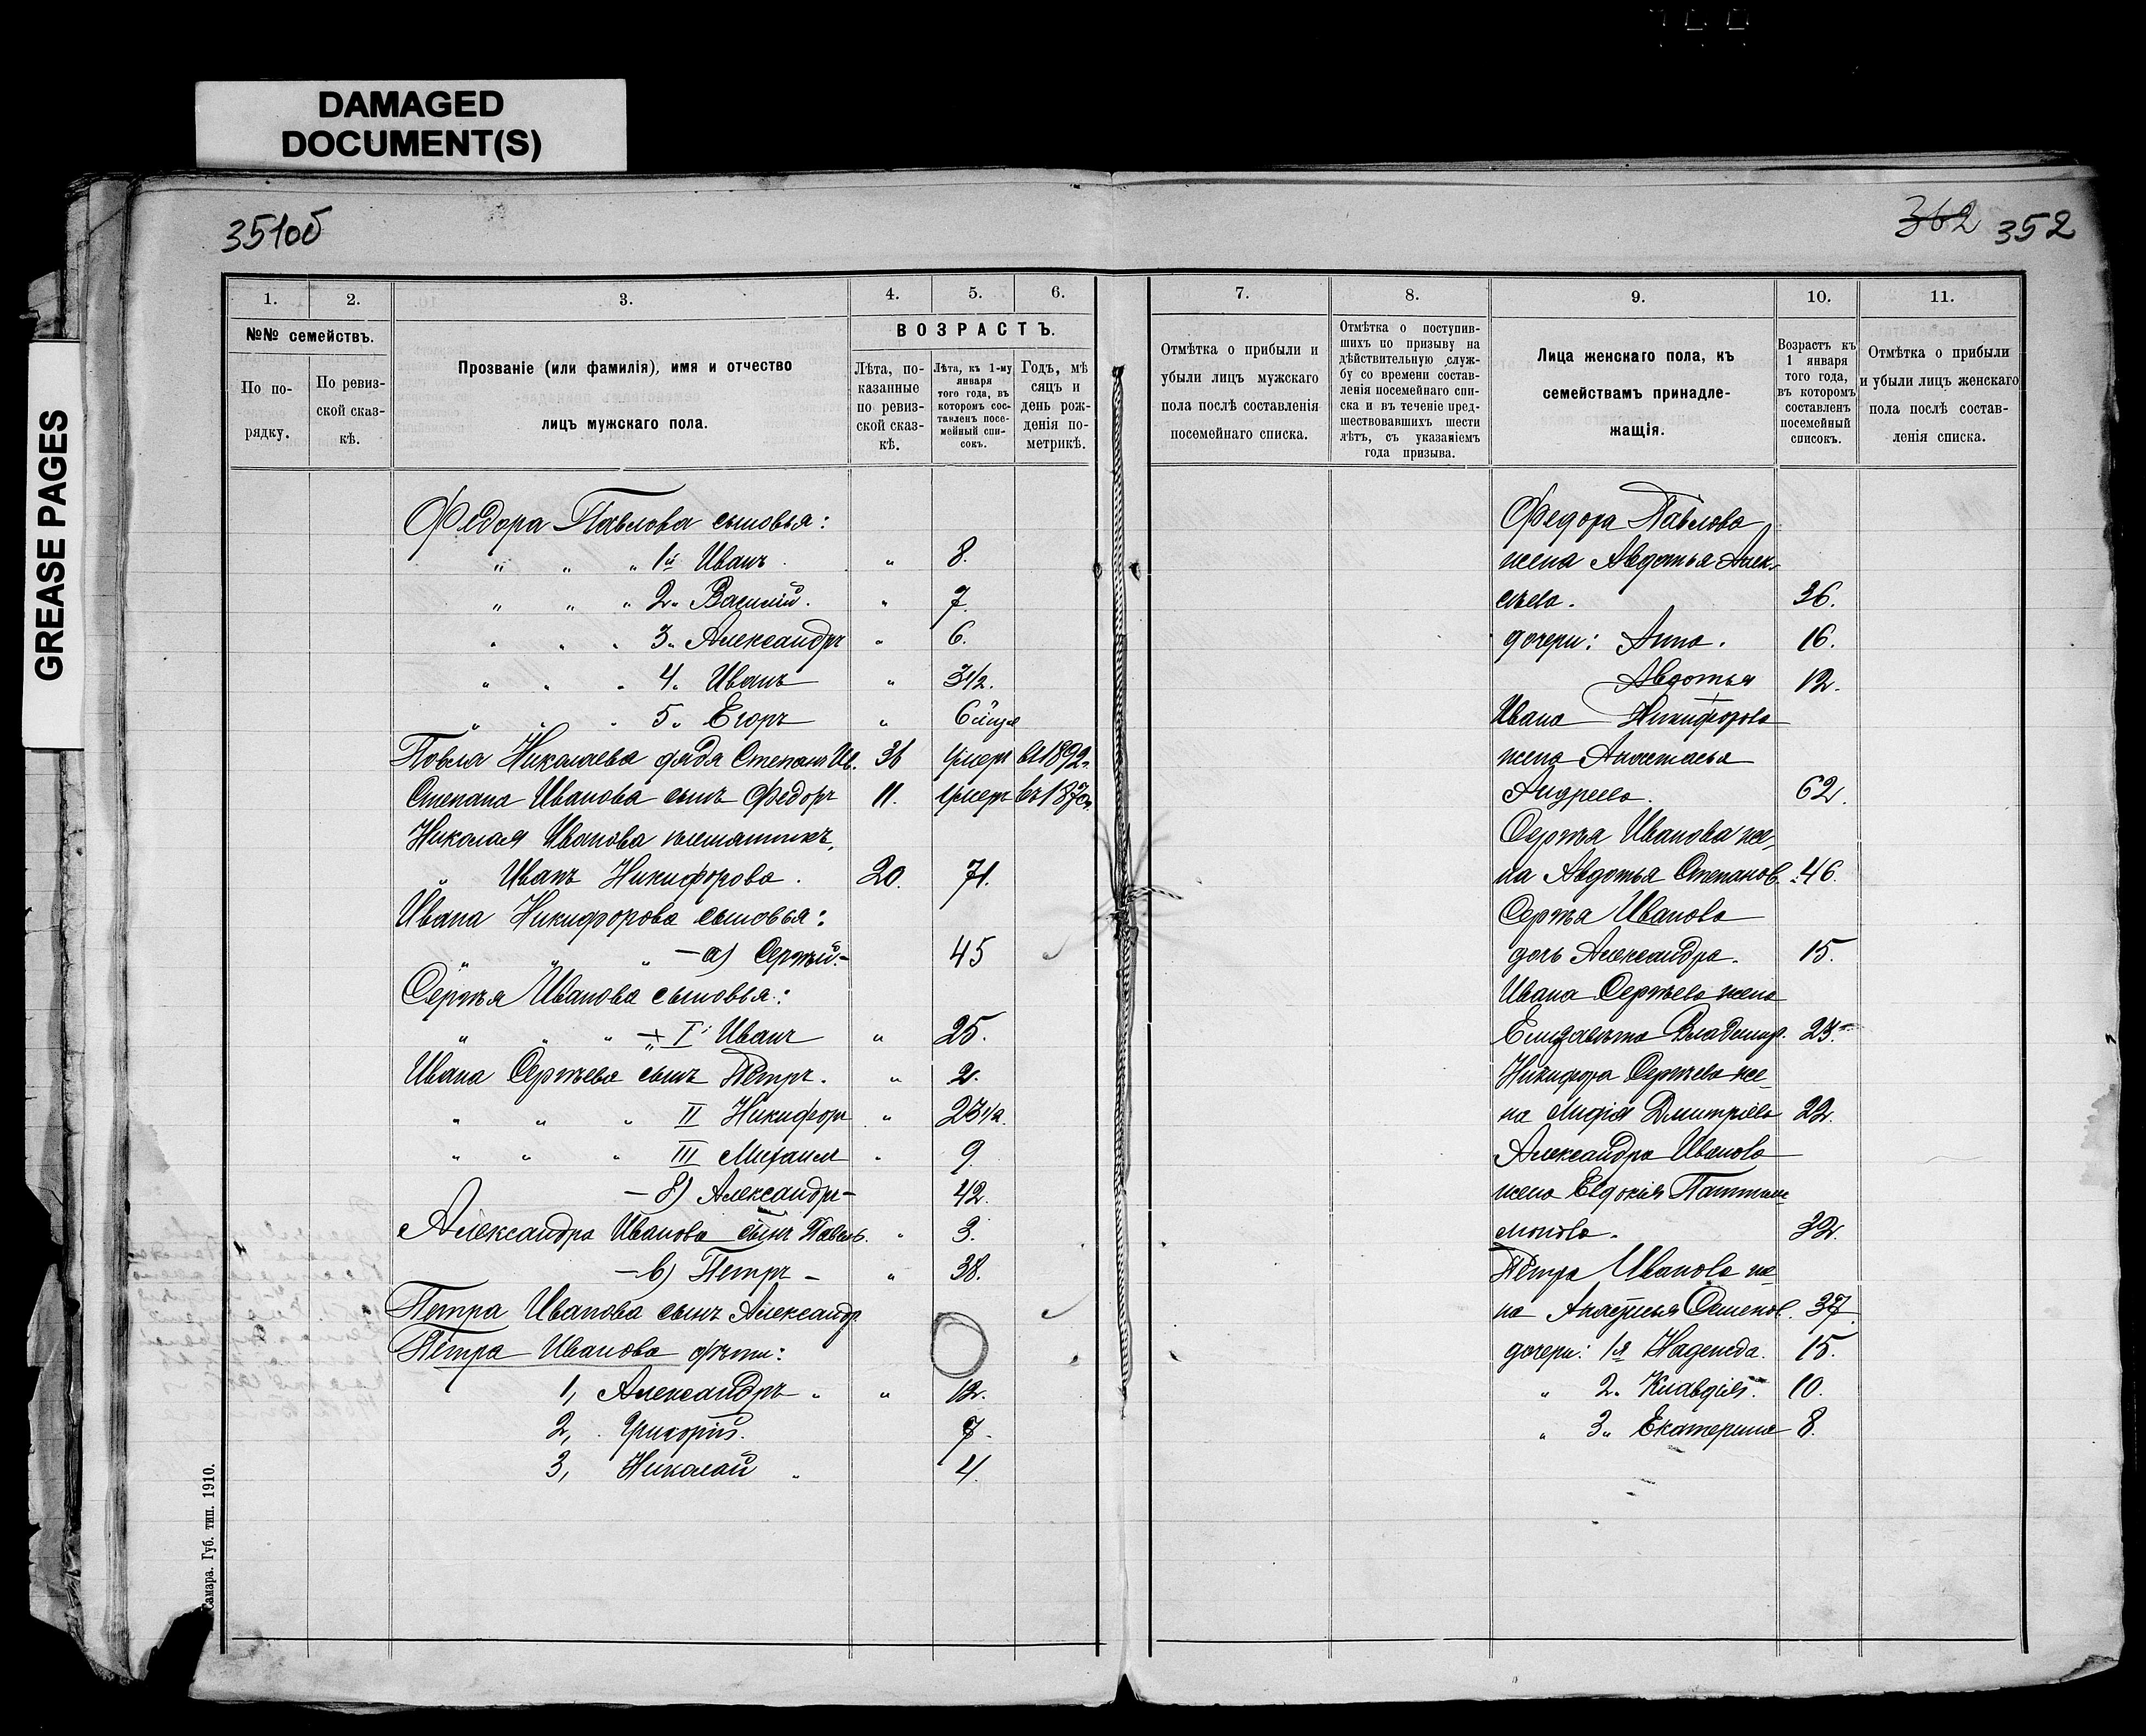 DAMAGED
DOCUMENT(S)
GREASE PAGES
351об
362 352
1. 2. 3. 4. 5. 6.
№№ семействъ.
По по-
рядку.
По ревиз-
ской сказ-
кѣ.
Прозваніе (или фамилія), имя и отчество
лицъ мужскаго пола.
ВОЗРАСТЪ.
Лѣта, по-
казанные
по ревиз-
ской сказ-
кѣ.
Лѣта, къ 1-му
января
того года, въ
которомъ сос-
тавленъ посе-
мейный спи-
сокъ.
Годъ, мѣ
сяцъ и
день рож-
денія по-
метрикѣ.
Федора Павлова сыновья:
" " " 1й Иванъ " 8.
" " " 2" Василій. " 7.
" " " 3" Александръ " 6.
" " " 4" Иванъ " 3 1/2.
" " " 5" Егоръ " 6
Павла Николаева дядя Степанъ Ив. 31 умеръ въ 1892г.
Степана Иванова сынъ Федоръ 11. умеръ въ 187
Николая Иванова племянникъ,
" Иванъ Никифорова. 20. 71.
Ивана Никифорова сыновья:
" " " —а) Сергѣй.— 45
Сергѣя Иванова сыновья:
" " " + I Иванъ " 25.
Ивана Сергѣева сынъ Петръ. " 2.
" " " II Никифоръ " 23 1/2.
" " " III Михаилъ " 9.
— б) Александръ— 42.
Александра Иванова сынъ Павелъ. " 3.
— в) Петръ — " 38.
Петра Иванова сынъ Александр.
Петра Иванова дѣти:
1, Александръ " " 12.
2, Григорій. 7.
3, Николай " 4.
Самара. Губ. тип. 1910.
7. 8. 9. 10. 11.
Отмѣтка о прибыли и
убыли лицъ мужскаго
пола послѣ составленія
посемейнаго списка.
Отмѣтка о поступив-
шихъ по призыву на
дѣйствительную служ-
бу со времени состав-
ленія посемейнаго спи-
ска и въ теченіе пред-
шествовавшихъ шести
лѣтъ, съ указаніемъ
года призыва.
Лица женскаго пола, къ
семействамъ принадле-
жащія.
Возрастъ къ
1 января
того года,
въ которомъ
составленъ
посемейный
списокъ.
Отмѣтка о прибыли
и убыли лицъ женскаго
пола послѣ состав-
ленія списка.
Федора Павлова
жена Авдотья Алек-
сѣева. 36.
дочери: Анна. 16.
Авдотья 12.
Ивана Никифорова
жена Анастасья
Андреева. 62.
Сергѣя Иванова же-
на Авдотья Степанов. 46.
Сергѣя Иванова
дочь Александра. 15.
Ивана Сергѣева жена
Елизавета Владимир. 23.
Никифора Сергѣева же-
на Лидія Дмитріева 22.
Александра Иванова
жена Евдокія Пантеле
монова. 32.
Петра Иванова же
на Анастасья Семенов. 37.
дочери: 1я Надежда. 15.
" 2" Клавдія. 10.
" 3" Екатерина 8.